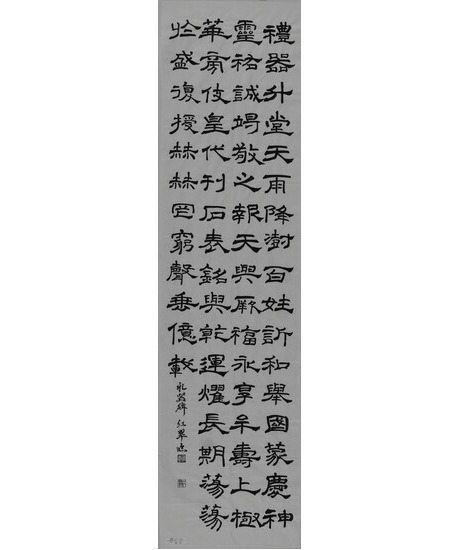 禮器升堂天雨降澍百姓訢和舉國蒙慶神
靈祐誠竭敬之報天與厥福永享牟壽上極
華旁伎皇代刊石表銘與乾運燿長期蕩蕩
於盛復授赫赫罔窮聲垂億載
礼器碑 红翠临